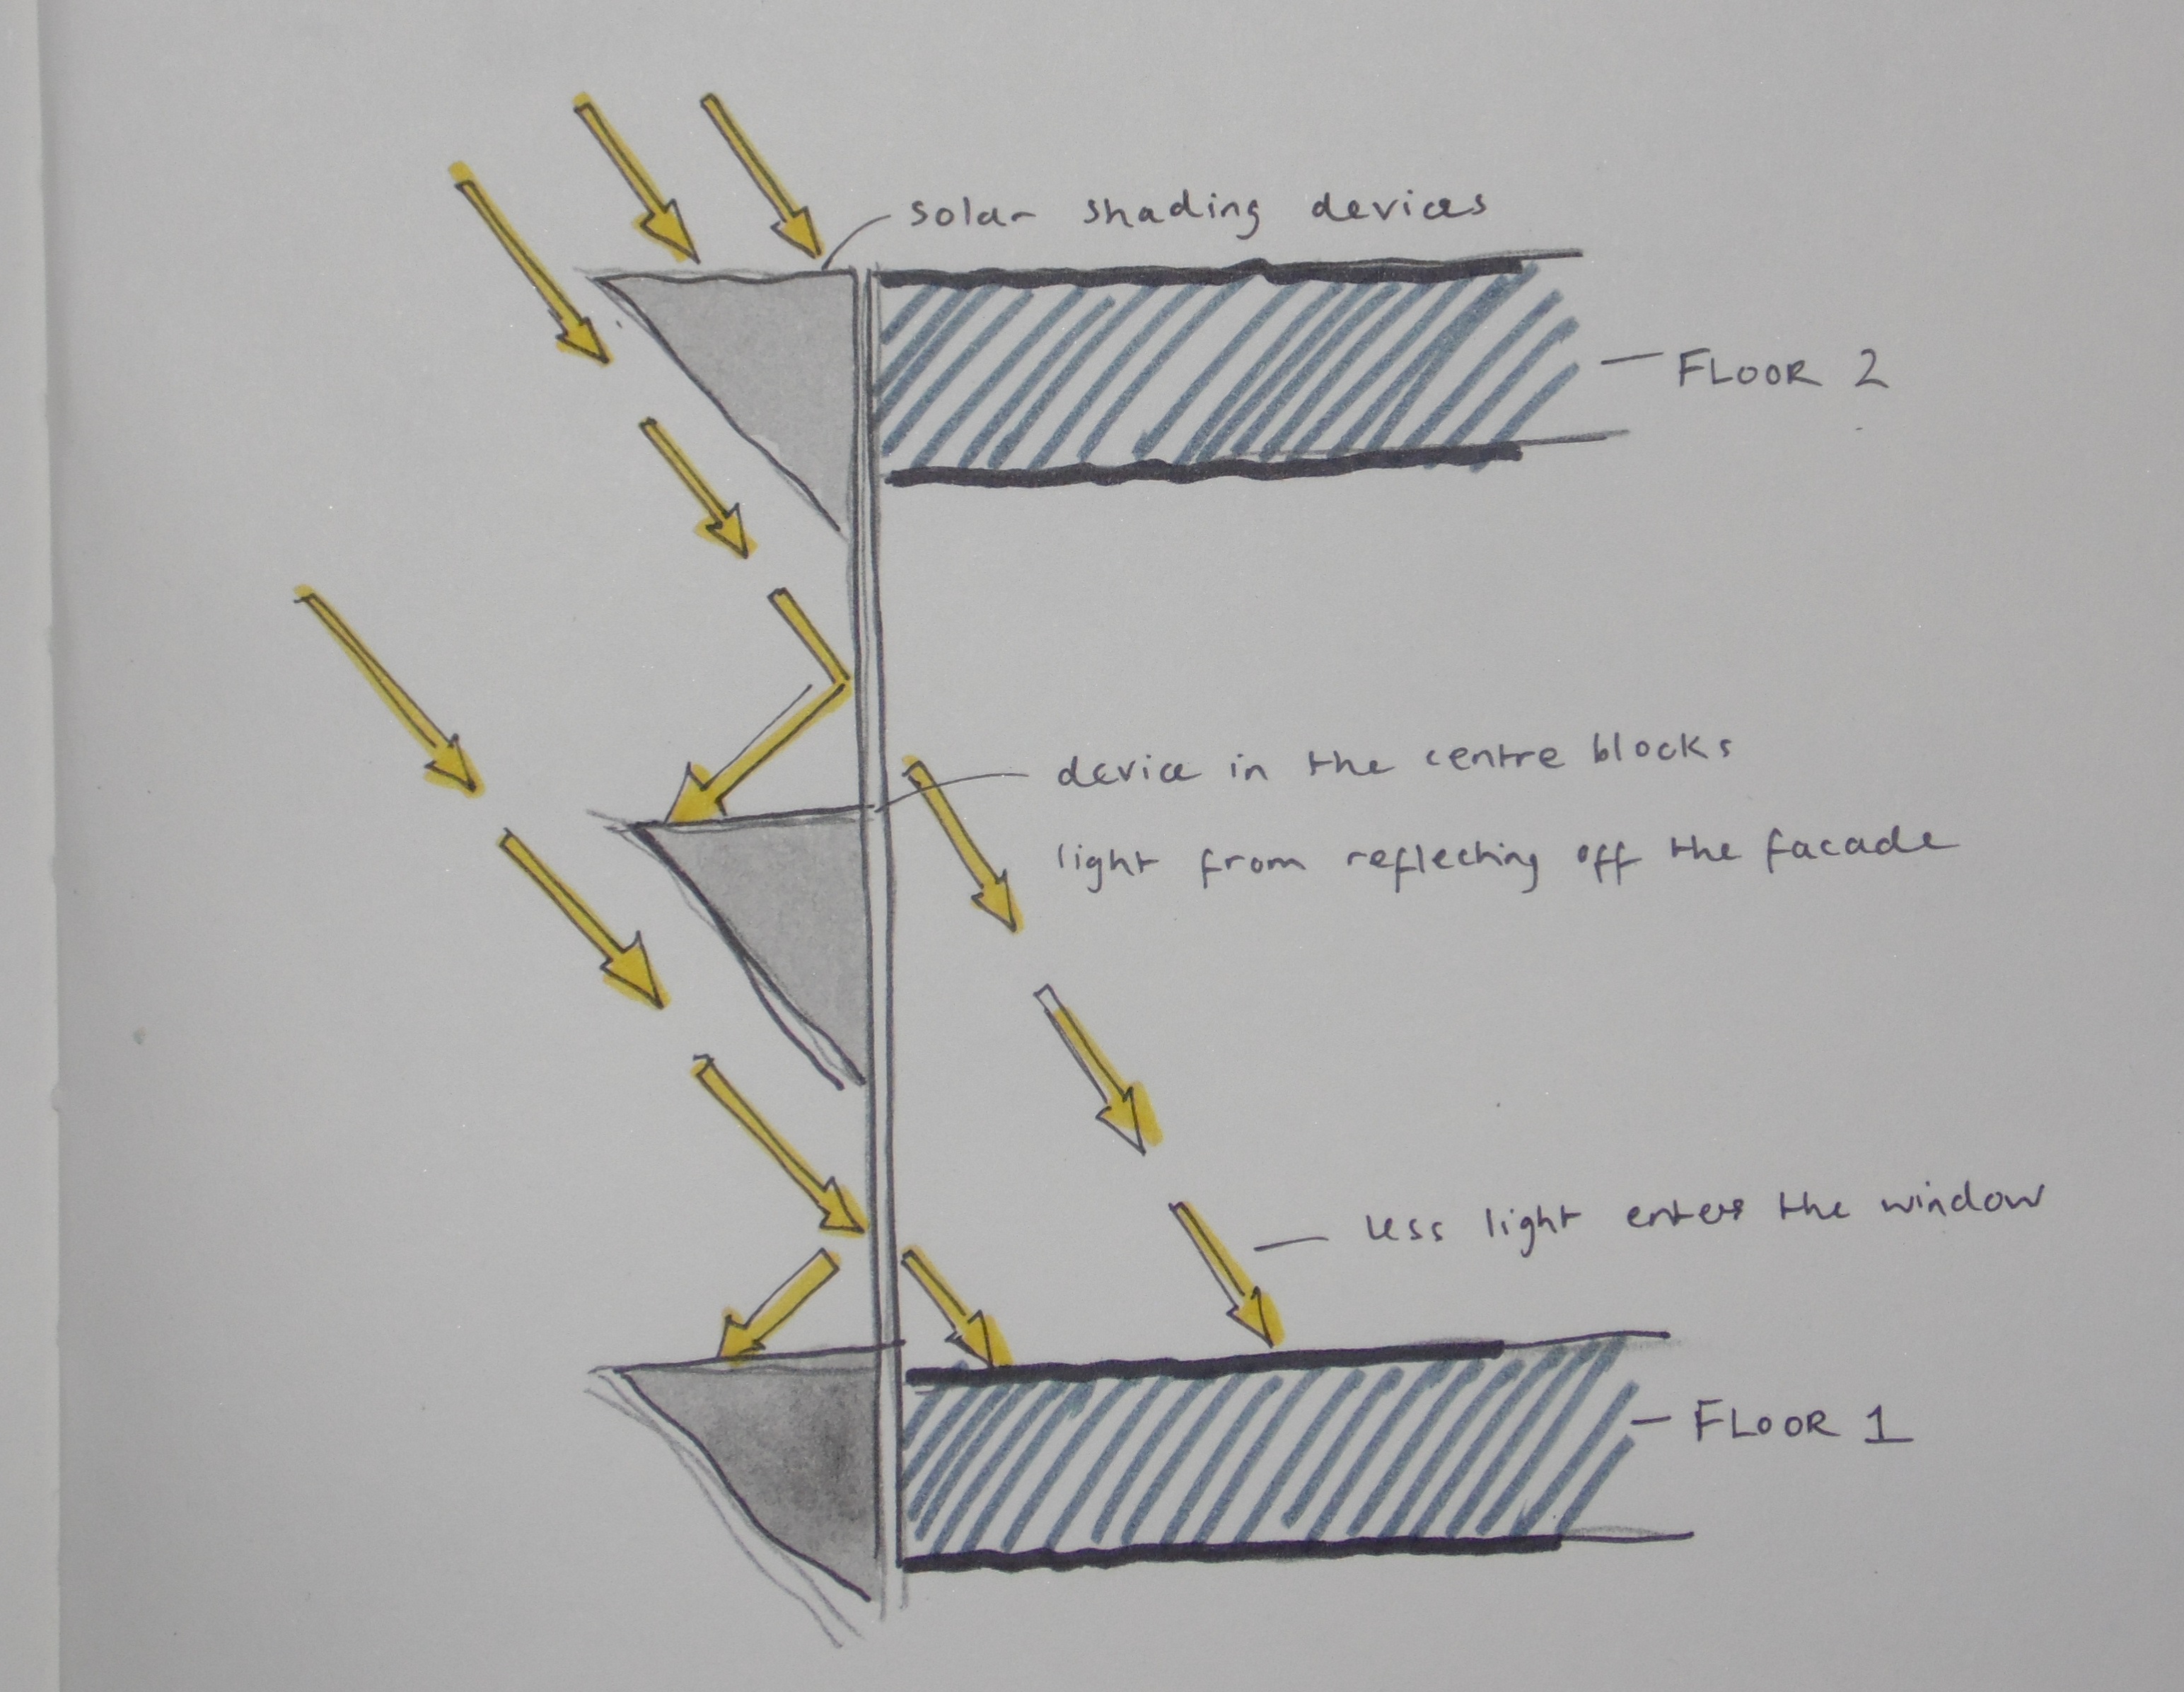 solar shading devices
FLOOR 2
device in the centre blocks
light from reflecting off the facade
less light enters the window
FLOOR 1